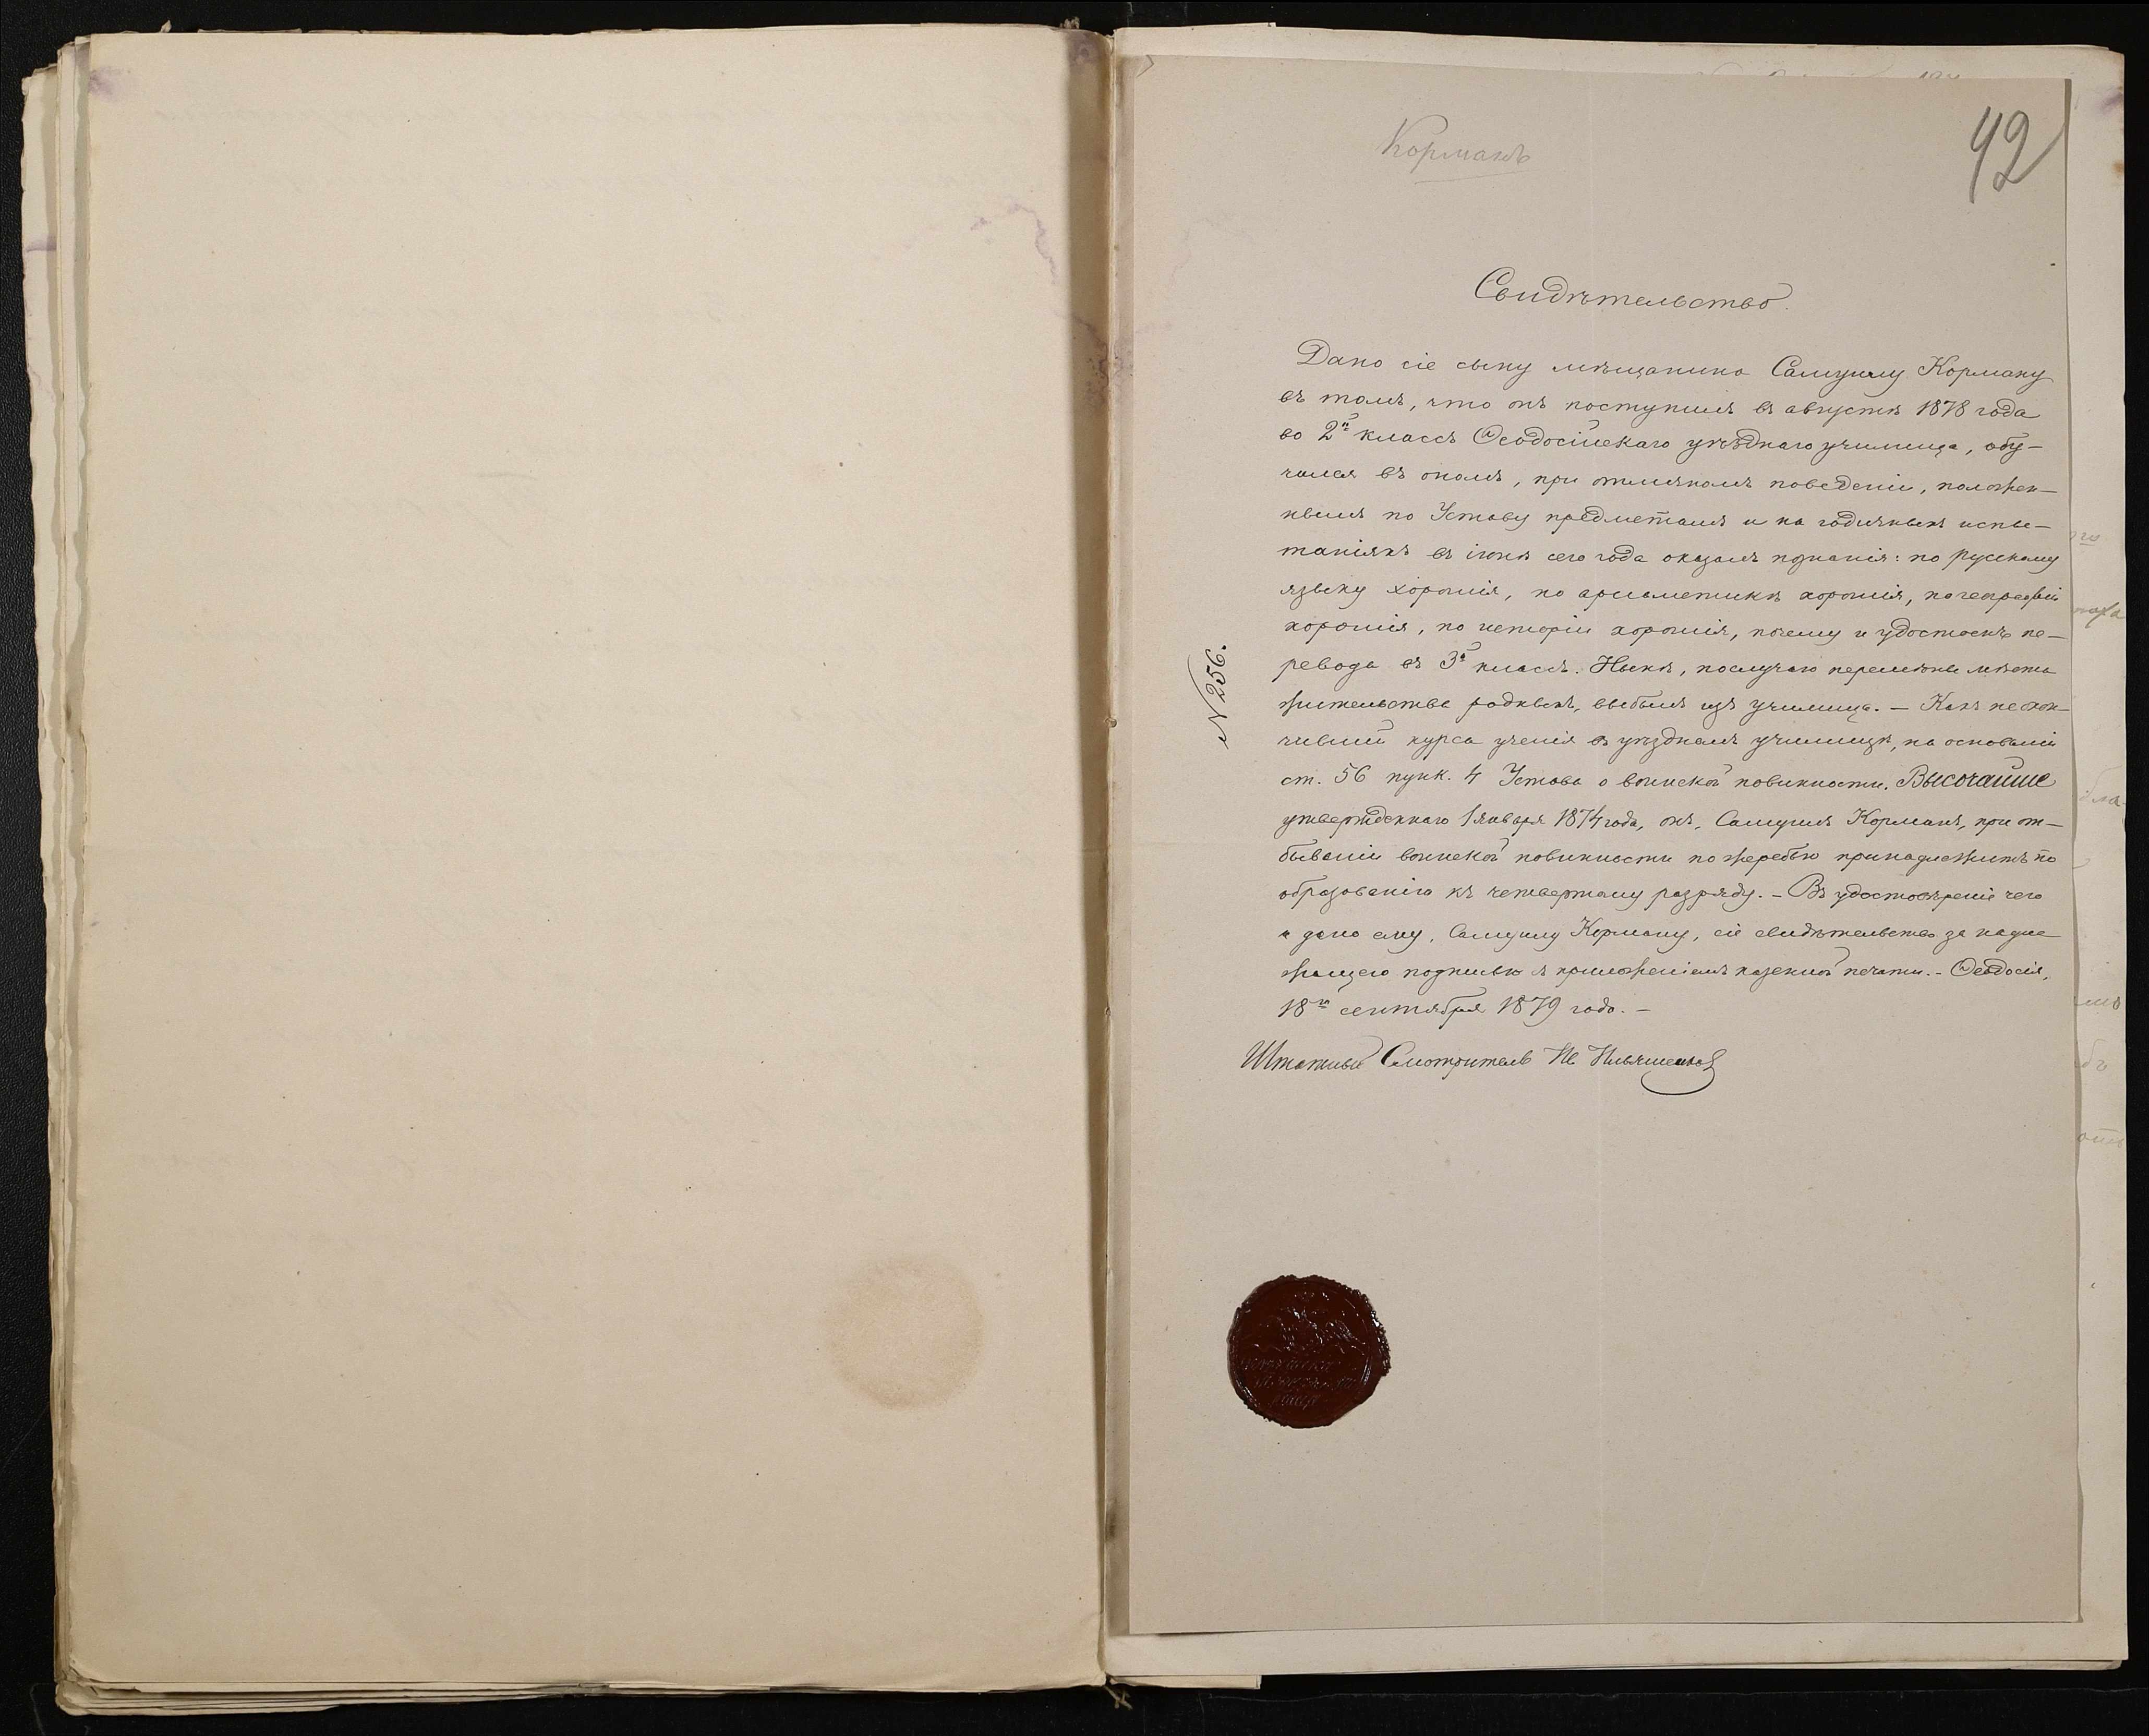 Корманъ
42
Свидѣтельство.
Дано сіе сыну мѣщанина Самуилу Корману
въ томъ, что онъ поступилъ въ августѣ 1878 года
во 2й классъ Ѳеодосійскаго уѣзднаго училища, обу-
чался въ ономъ, при отличномъ поведеніи, положен-
нымъ по Уставу предметамъ и на годичныхъ испы-
таніяхъ въ іюнѣ сего года оказалъ познанія: по русскому
языку хорошія, по ариѳметикѣ хорошія, по географіи
хорошія, по исторіи хорошія, почему и удостоенъ пе-
ревода въ 3й классъ. Нынѣ, по случаю перемѣны мѣста
жительства родныхъ, выбылъ изъ училища. – Какъ не окон-
чившій курса ученія въ уѣздномъ училищѣ, на основаніи
ст. 56 пунк. 4 Устава о воинской повинности, Высочайше
утвержденнаго 1 января 1874 года, онъ, Самуилъ Корманъ, при от-
бываніи воинской повинности по жеребью принадлежитъ по
образованію къ четвертому разряду. – Въ удостовѣреніе чего
и дано ему, Самуилу Корману, сіе свидѣтельство за надле
жащею подписью и приложеніемъ казенной печати. – Ѳеодосія,
18го сентября 1879 года. –
Штатный Смотритель
№ 256.